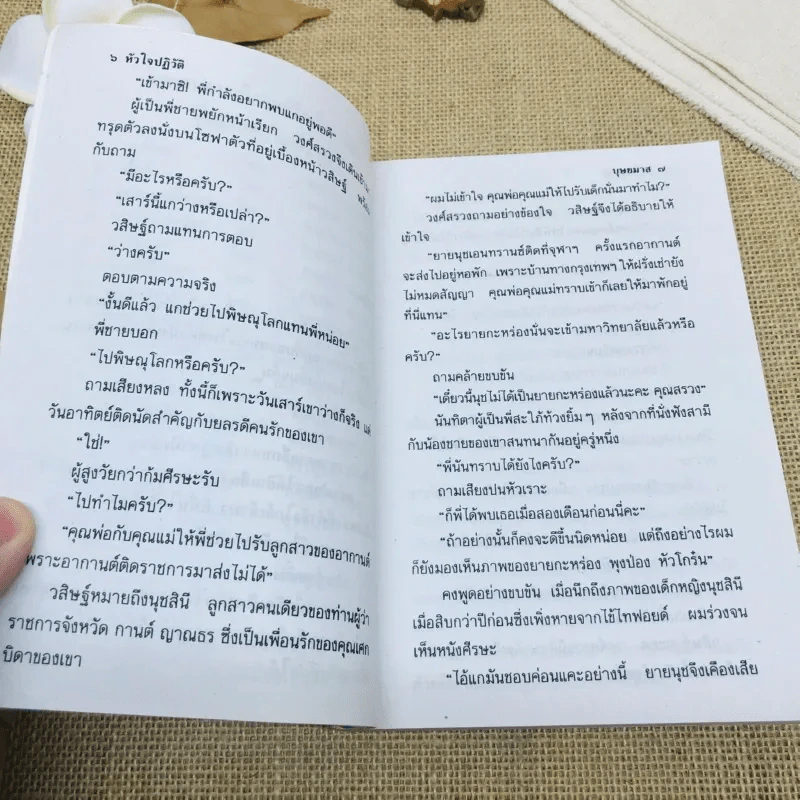 ๖ หัวใจปฏิวัติ
“เข้ามาซิ! พี่กำลังอยากพบแกอยู่พอดี”
ผู้เป็นพี่ชายพยักหน้าเรียก วงศ์สรวงจึงเดินเข้ามา
ทรุดตัวลงนั่งบนโซฟาตัวที่อยู่เบื้องหน้าวสิษฐ์ พร้อม
กับถาม
“มีอะไรหรือครับ?”
“เสาร์นี้แกว่างหรือเปล่า?”
วสิษฐ์ถามแทนการตอบ
“ว่างครับ”
ตอบตามความจริง
“งั้นดีแล้ว แกช่วยไปพิษณุโลกแทนพี่หน่อย”
พี่ชายบอก
“ไปพิษณุโลกหรือครับ?”
ถามเสียงหลง ทั้งนี้ก็เพราะวันเสาร์เขาว่างก็จริง แต่
วันอาทิตย์ติดนัดสำคัญกับยลรดีคนรักของเขา
“ใช่!”
ผู้สูงวัยกว่าก้มศีรษะรับ
“ไปทำไมครับ?”
“คุณพ่อกับคุณแม่ให้พี่ช่วยไปรับลูกสาวของอากานต์
เพราะอากานต์ติดราชการมาส่งไม่ได้”
วสิษฐ์หมายถึงนุชสินี ลูกสาวคนเดียวของท่านผู้ว่า
ราชการจังหวัด กานต์ ญาณธร ซึ่งเป็นเพื่อนรักของคุณเศก
บิดาของเขา
บุษยมาส ๗
“ผมไม่เข้าใจ คุณพ่อคุณแม่ให้ไปรับเด็กนั่นมาทำไม?”
วงศ์สรวงถามอย่างข้องใจ วสิษฐ์จึงได้อธิบายให้
เข้าใจ
“ยายนุชเอนทรานซ์ติดที่จุฬาฯ ครั้งแรกอากานต์
จะส่งไปอยู่หอพัก เพราะบ้านทางกรุงเทพฯ ให้ฝรั่งเช่ายัง
ไม่หมดสัญญา คุณพ่อคุณแม่ทราบเข้าก็เลยให้มาพักอยู่
ที่นี่แทน”
“อะไรยายกะหร่องนั่นจะเข้ามหาวิทยาลัยแล้วหรือ
ครับ?”
ถามคล้ายขบขัน
“เดี๋ยวนี้นุชไม่ได้เป็นยายกะหร่องแล้วนะคะ คุณสรวง”
นันทิตาผู้เป็นพี่สะใภ้ท้วงยิ้มๆ หลังจากที่นั่งฟังสามี
กับน้องชายของเขาสนทนากันอยู่ครู่หนึ่ง
“พี่นันทราบได้ยังไงครับ?”
ถามเสียงปนหัวเราะ
“ก็พี่ได้พบเธอเมื่อสองเดือนก่อนนี่คะ”
“ถ้าอย่างนั้นก็คงจะดีขึ้นนิดหน่อย แต่ถึงอย่างไรผม
ก็ยังมองเห็นภาพของยายกะหร่อง พุงป่อง หัวโกร๋น”
คงพูดอย่างขบขัน เมื่อนึกถึงภาพของเด็กหญิงนุชสินี
เมื่อสิบกว่าปีก่อนซึ่งเพิ่งหายจากไข้ไทฟอยด์ ผมร่วงจน
เห็นหนังศีรษะ
“ไอ้แกมันชอบค่อนแคะอย่างนี้ ยายนุชจึงเคืองเสีย